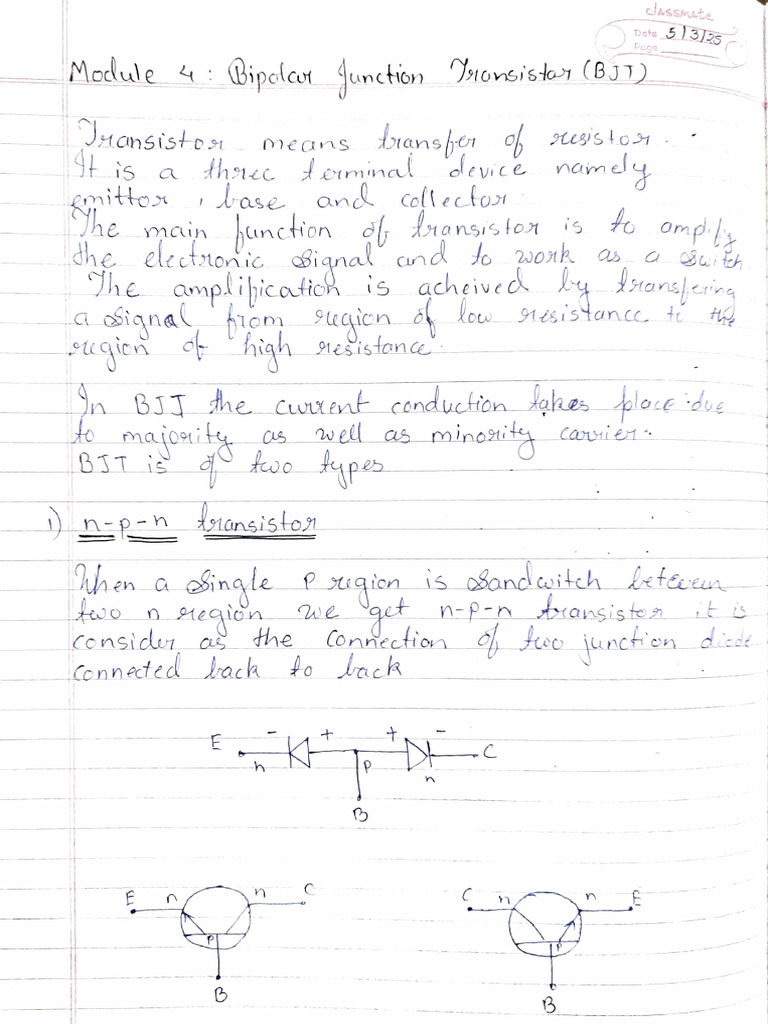 classmate
Date 5/3/25
Page
Module 4 : Bipolar Junction Transistor (BJT)
Transistor means transfer of resistor.
It is a three terminal device namely
emittor, base and collector.
The main function of transistor is to amplify
the electronic signal and to work as a switch
The amplification is acheived by transfering
a signal from region of low resistance to the
region of high resistance.
In BJT the current conduction takes place due
to majority as well as minority carrier.
BJT is of two types
1) n-p-n transistor
When a single p region is sandwitch between
two n region we get n-p-n transistor it is
consider as the connection of two junction diode
connected back to back
E - + + - C
n p n
B
E n n C
p
B
C n n E
p
B